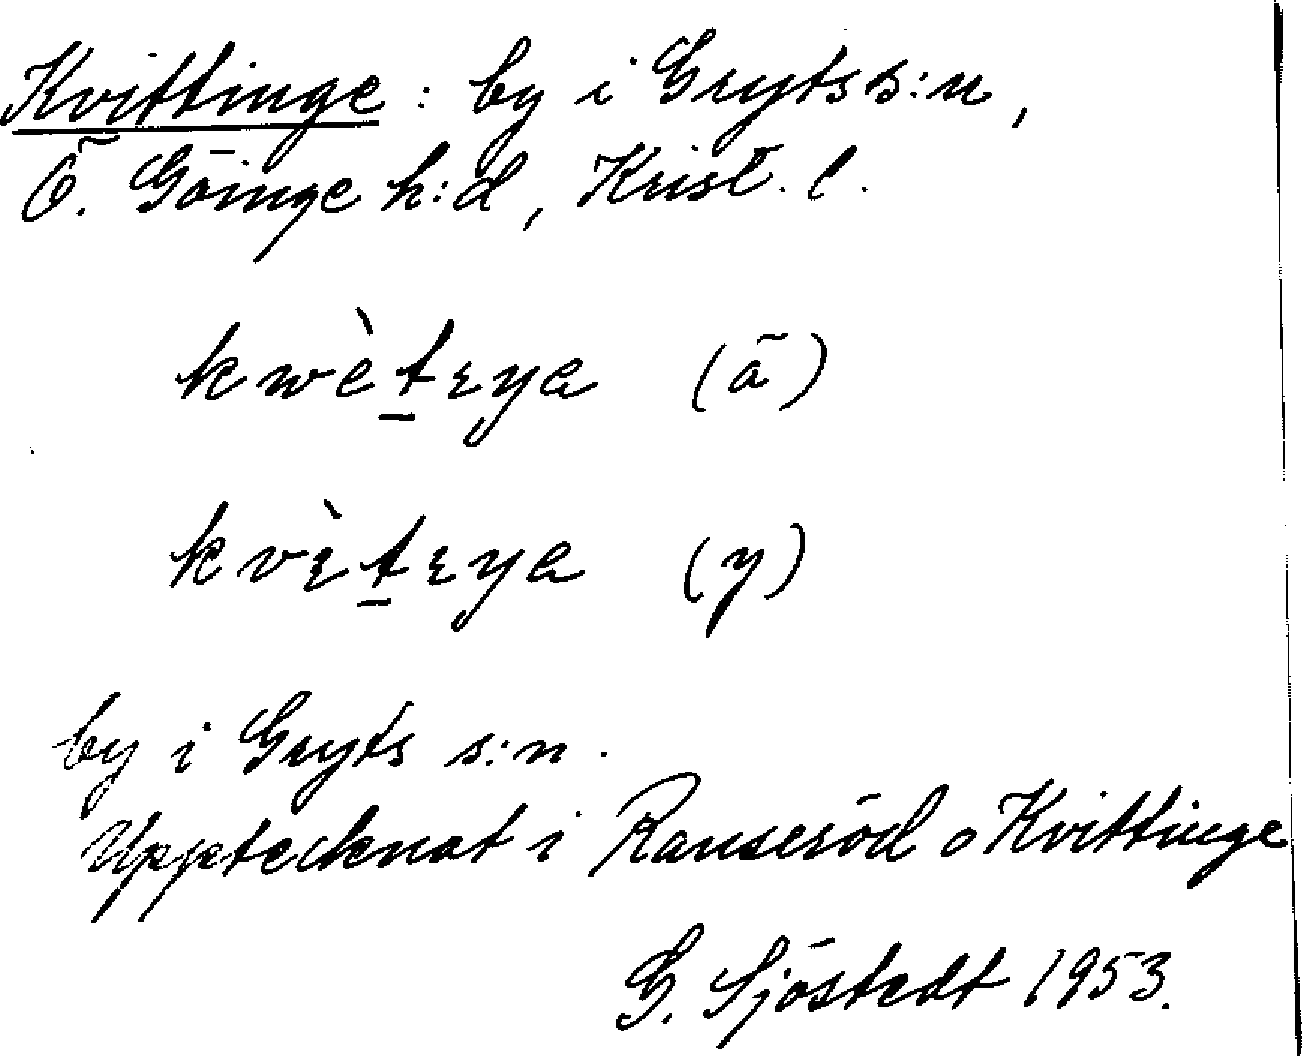 Kvittinge: by i Gryts s:n,
Ö. Göinge h:d, Krist. l.
kwètɛya (ä)
kvɛ̀tɛya (y)
by i Gryts s:n.
Upptecknat i Ranseröd o Kvittinge
G. Sjöstedt 1953.